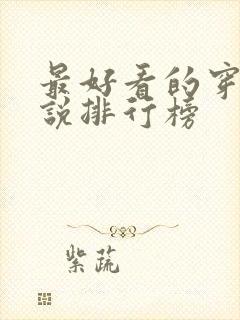 最好看的穿
說排行榜
紫蔬